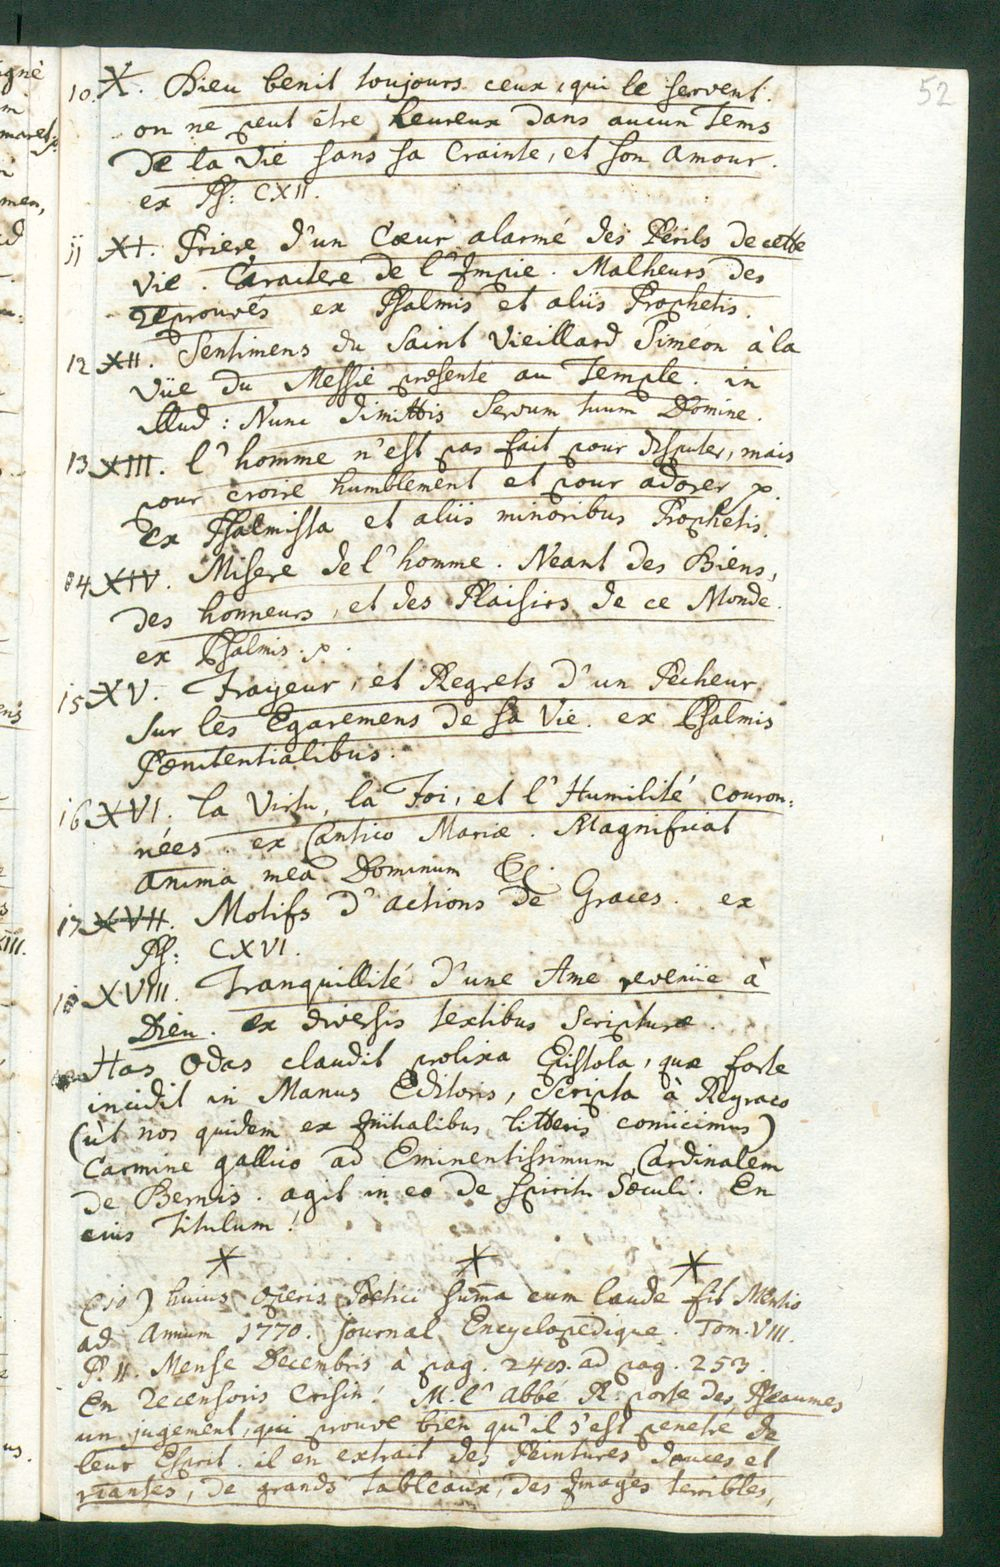 52
10. X. Dieu benit toujours ceux, qui le servent.
on ne peut être heureux dans aucun Tems
de la Vie sans sa Crainte, et son amour.
ex Ps: CXII.
11 XI. Priere d'un Cœur alarmé des Périls de cette
Vie. Caractere de l'Impie. Malheurs des
reprouvés ex Psalmis et aliis Prophetis.
12 XII. Sentimens du Saint Vieillard Siméon à la
Vüe du Messie presenté au Temple. in
illud: Nunc dimittis Servum tuum Domine.
13 XIII. l'homme n'est pas fait pour disputer, mais
pour croire humblement et pour adorer p.
ex Psalmista et aliis minoribus Prophetis.
14 XIV. Misere de l'homme. Neant des Biens,
des honneurs, et des Plaisirs de ce Monde.
ex Psalmis. p.
15 XV. Frayeur, et Regrets d'un Pecheur
sur les Egaremens de sa Vie. ex Psalmis
Pœnitentialibus.
16 XVI. la Virtu, la Foi, et l'Humilité couron:
nées. ex Cantico Mariæ. Magnificat
anima mea Dominum &c.
17 XVII. Motifs d'actions de Graces. ex
Ps: CXVI.
18 XVIII. Tranquillité d'une Ame revenüe à
Dieu. ex diversis textibus Scripturæ.
Has Odas claudit prolixa Epistola, quæ forte
incidit in Manus Editoris, scripta à Reyraco
(ùt nos quidem ex Initialibus litteris coniicimus)
Carmine gallico ad Eminentissimum Cardinalem
de Bernis. agit in eo de spiritu Sæculi. En
eius Titulum!
* * *
(10) huius Operis Poetici summa cum laude fit Mentio
ad Annum 1770. Journal Encyclopédique. Tom. VIII.
P. II. Mense Decembris à pag. ad pag. 253.
En recensoris Crisin! M. l'Abbé R. porte des Pseaumes
un jugement, qui prouve bien qu'il s'est penetré de
leur Esprit. il en extrait des Peintures douces et
riantes, de grands tableaux, des Images terribles,